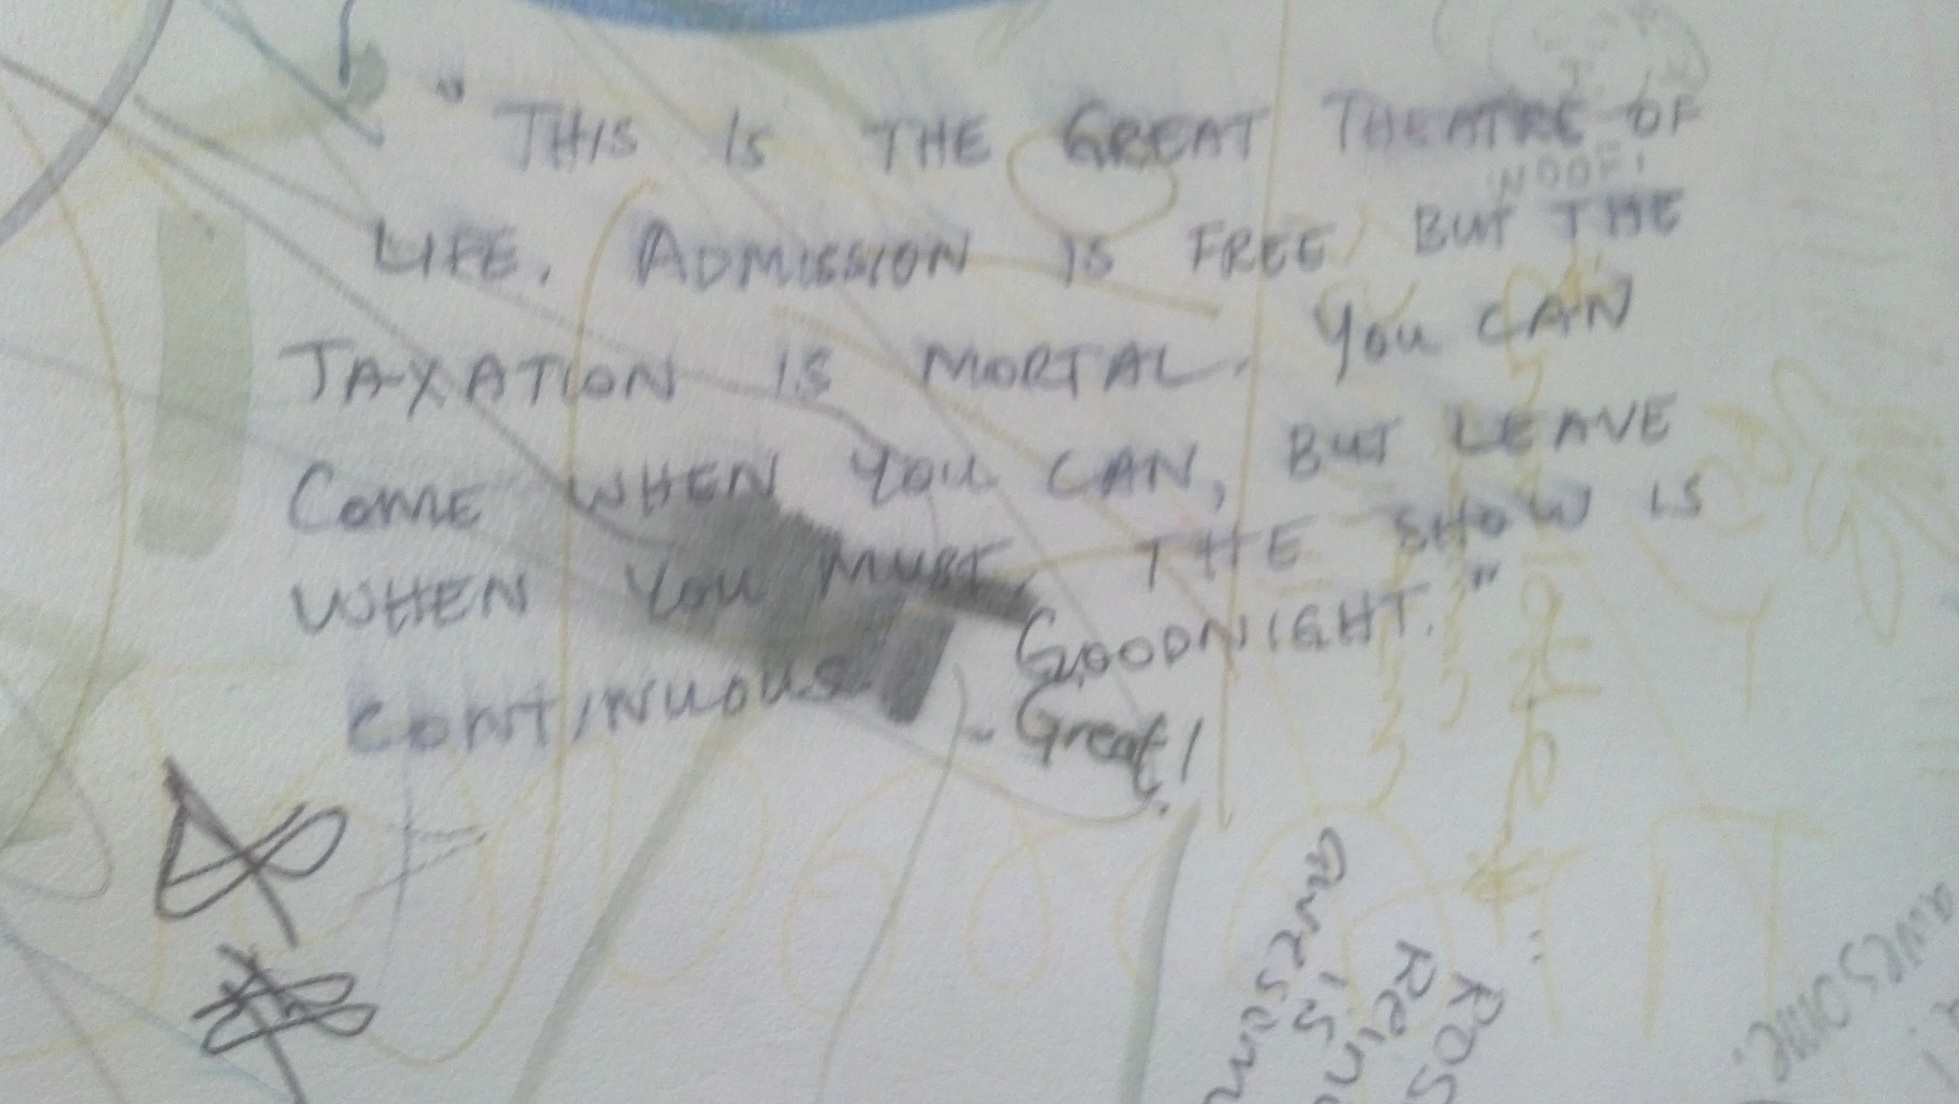 " THIS IS THE GREAT THEATRE OF
WOOF!
LIFE. ADMISSION IS FREE, BUT THE
TAXATION IS MORTAL. YOU CAN
COME WHEN YOU CAN, BUT LEAVE
WHEN YOU MUST, THE SHOW IS
CONTINUOUS. GOODNIGHT."
- Great!
Awesome.
is